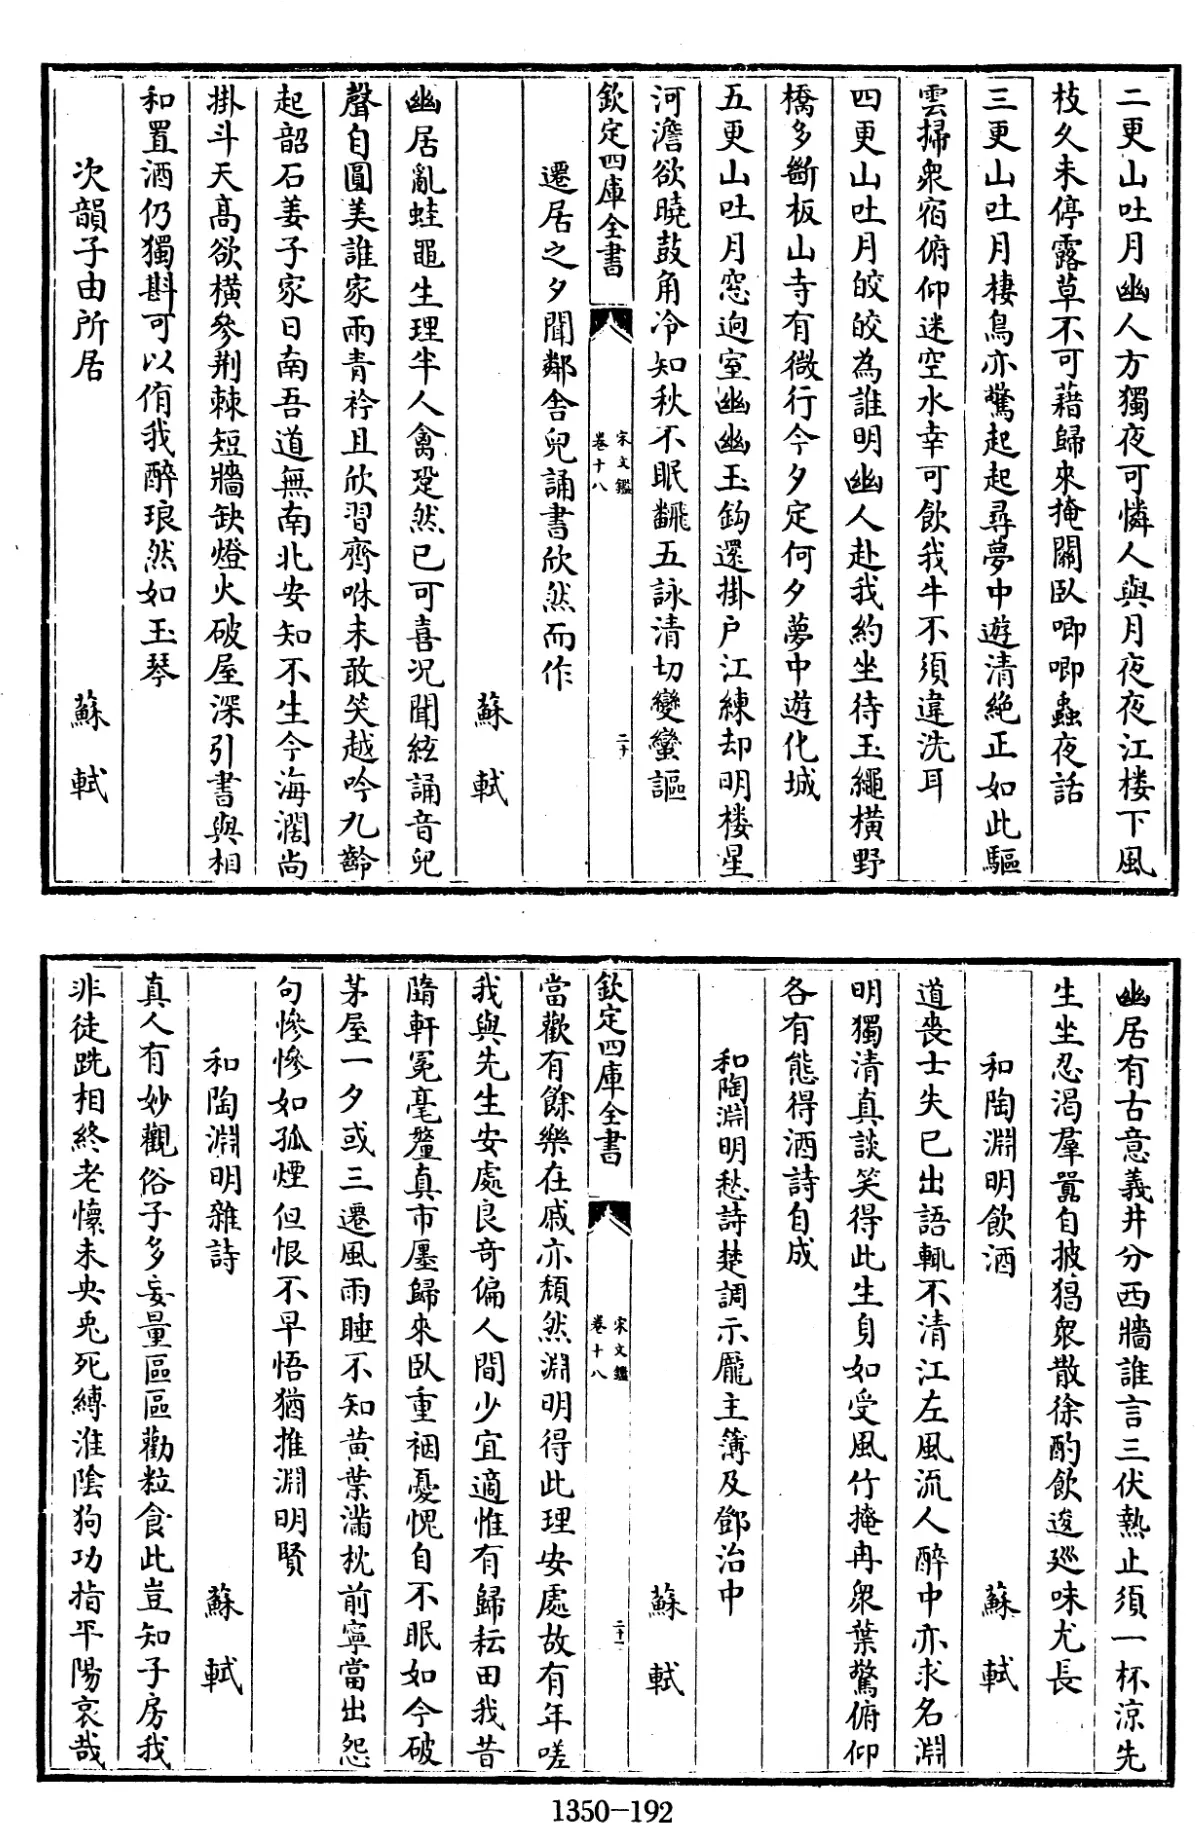 二更山吐月幽人方獨夜可憐人與月夜夜江樓下風
枝久未停露草不可藉歸來掩關臥唧唧蟲夜話
三更山吐月棲鳥亦驚起起尋夢中遊清絶正如此驅
雲掃衆宿俯仰迷空水幸可飲我牛不須違洗耳
四更山吐月皎皎為誰明幽人赴我約坐待玉繩橫野
橋多斷板山寺有微行今夕定何夕夢中遊化城
五更山吐月窓迥室幽幽玉鈎還掛户江練却明樓星
河澹欲曉鼓角冷知秋不眠飜五詠清切變蠻謳
欽定四庫全書
宋文鑑
卷十八
二十
遷居之夕聞鄰舍兒誦書欣然而作
蘇軾
幽居亂蛙黽生理半人禽跫然已可喜況聞絃誦音兒
聲自圓美誰家兩青衿且欣習齊咻未敢笑越吟九齡
起韶石姜子家日南吾道無南北安知不生今海濶尚
掛斗天高欲橫參荆棘短牆缺燈火破屋深引書與相
和置酒仍獨斟可以侑我醉琅然如玉琴
次韻子由所居
蘇軾
幽居有古意義井分西牆誰言三伏熱止須一杯涼先
生坐忍渴羣囂自披猖衆散徐酌飲逡廵味尤長
和陶淵明飲酒
蘇軾
道喪士失已出語輒不清江左風流人醉中亦求名淵
明獨清真談笑得此生身如受風竹掩冉衆葉驚俯仰
各有態得酒詩自成
和陶淵明愁詩楚調示龎主簿及鄧治中
蘇軾
欽定四庫全書
宋文鑑
卷十八
二十一
當歡有餘樂在戚亦頽然淵明得此理安處故有年嗟
我與先生安處良奇偏人間少宜適惟有歸耘田我昔
隋軒冕毫釐真市廛歸來臥重裀憂愧自不眠如今破
茅屋一夕或三遷風雨睡不知黄葉滿枕前寧當出怨
句慘慘如孤煙但恨不早悟猶推淵明賢
和陶淵明雜詩
蘇軾
真人有妙觀俗子多妄量區區勸粒食此豈知子房我
非徒跣相終老懷未央兎死縛淮陰狗功指平陽哀哉
1350-192